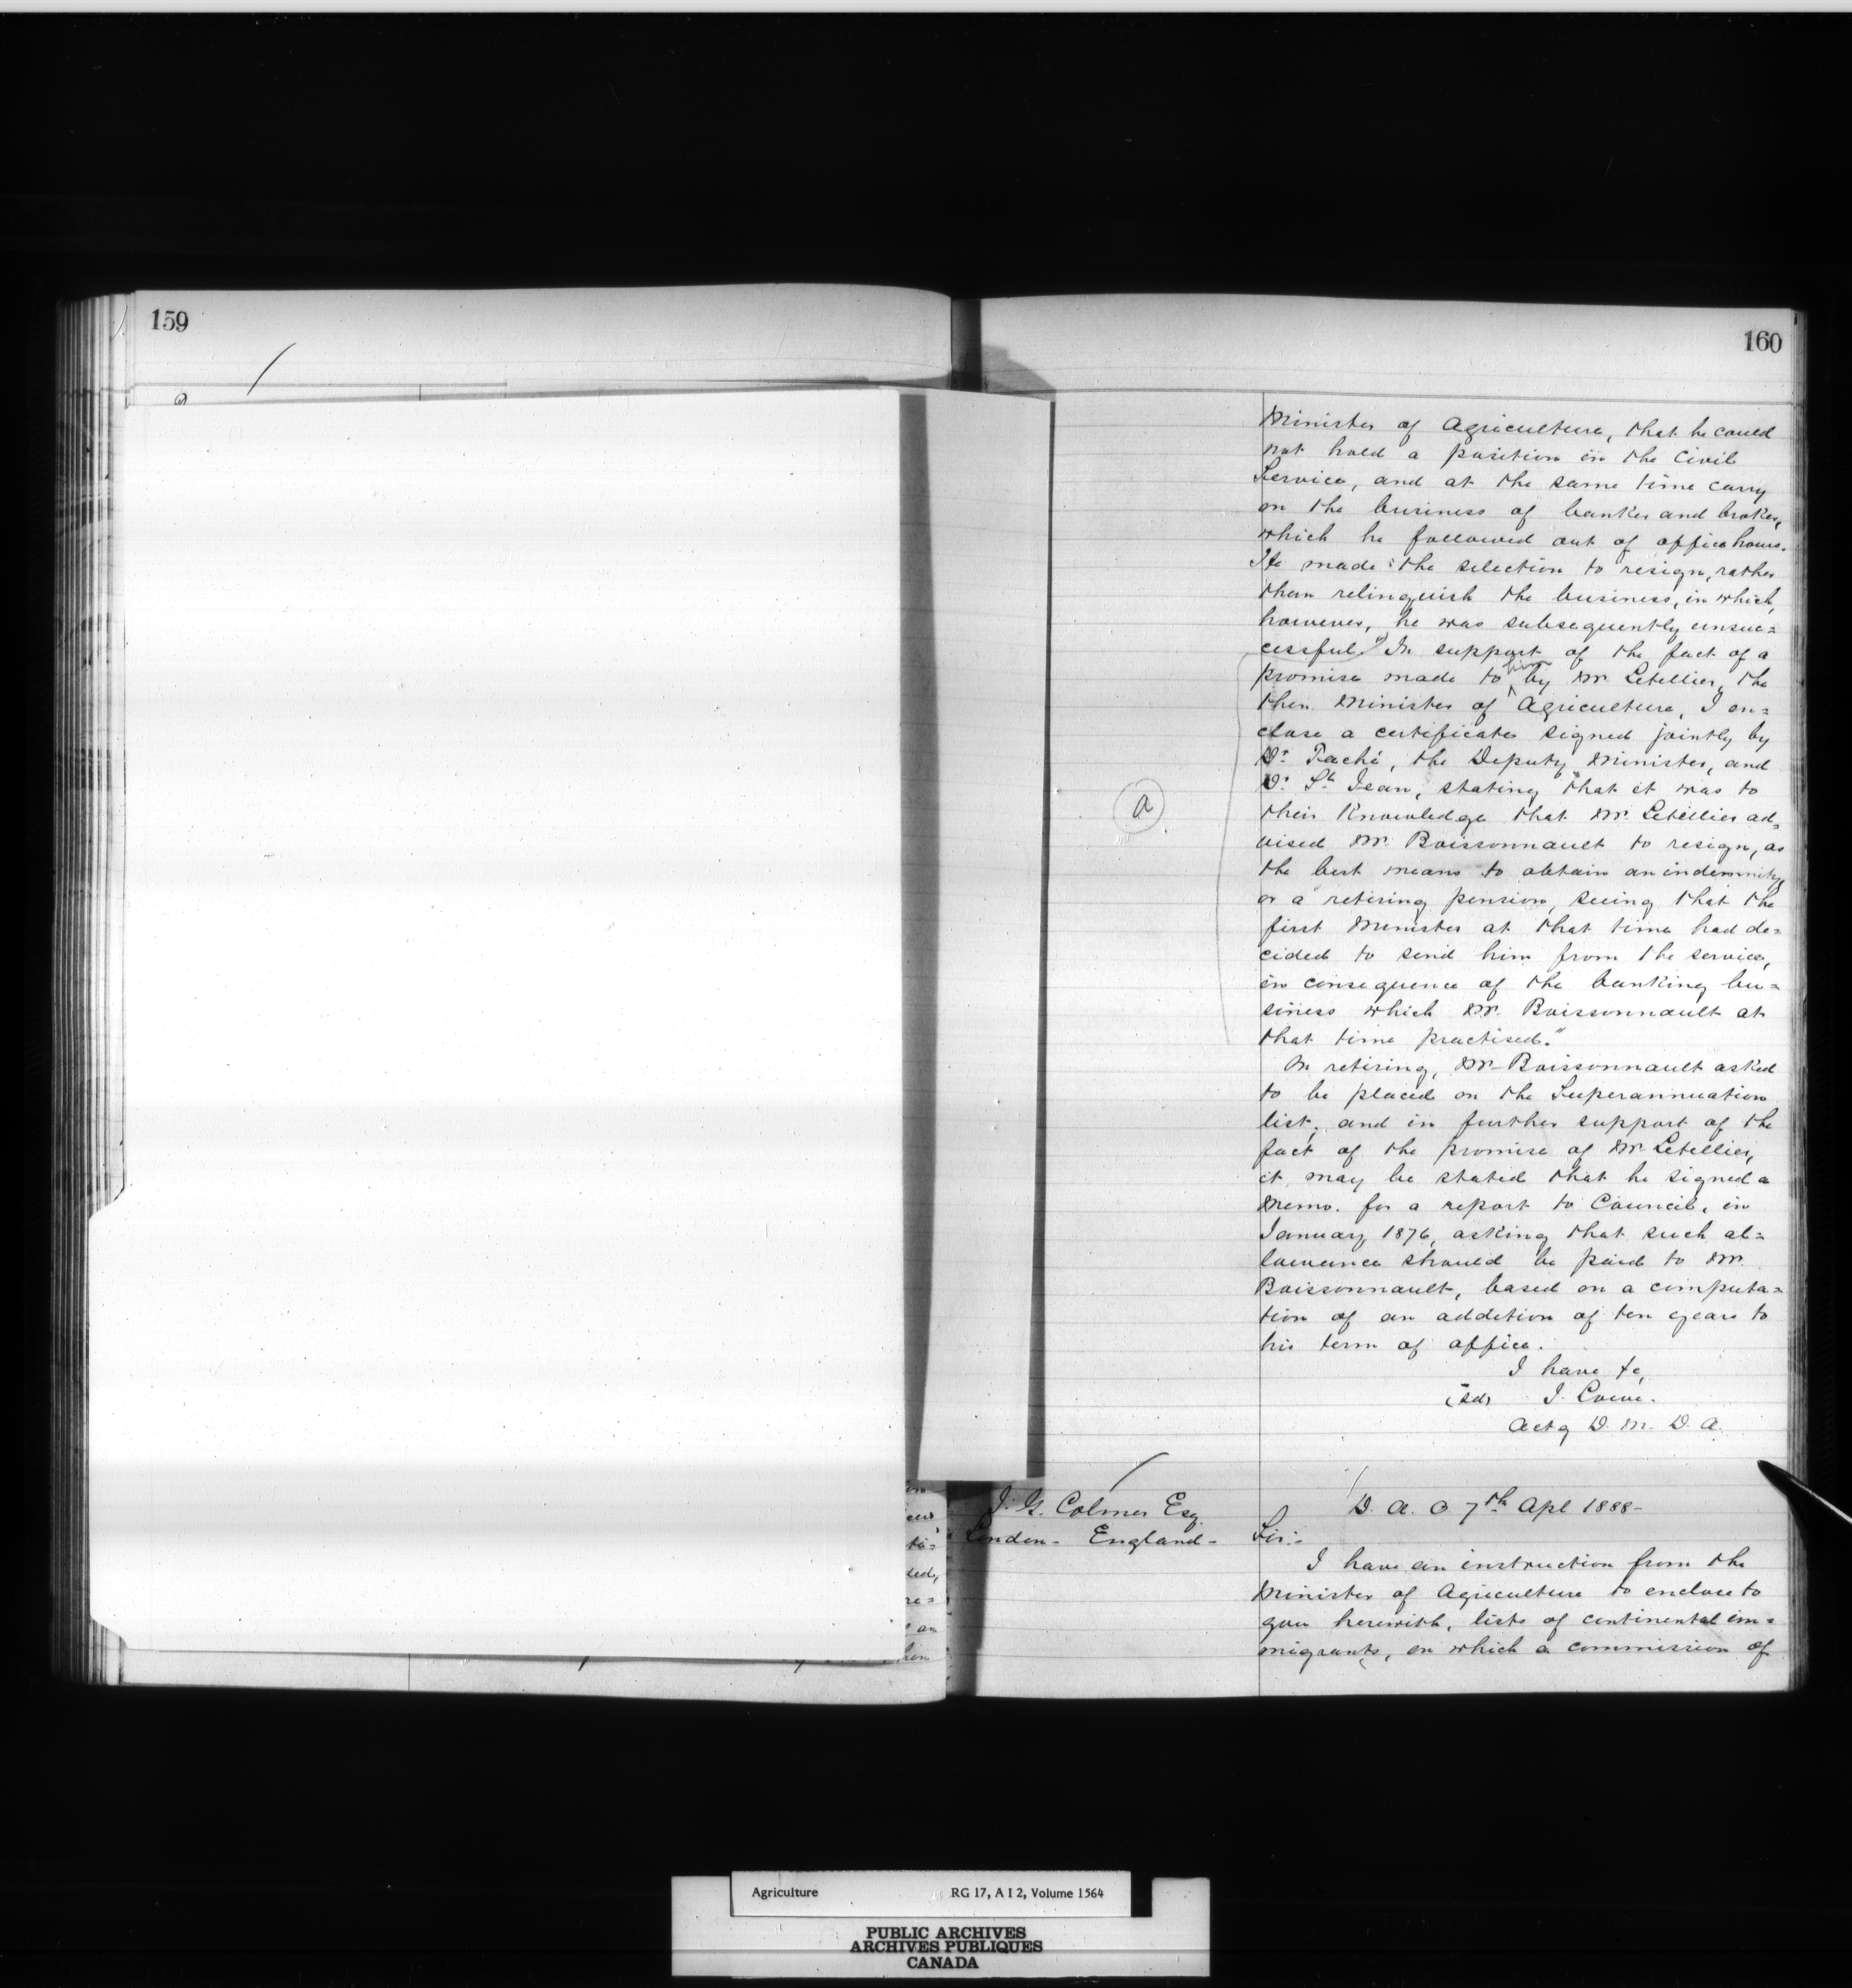 159
160
Minister of Agriculture, that he could
not hold a position in the Civil
Service, and at the same time carry
on the business of banker and broker,
which he followed out of office hours.
He made the selection to resign, rather
than relinquish the business, in which,
however, he was subsequently unsuc=
cessful. In support of the fact of a
promise made to him by Mr. Letellier, the
then Minister of Agriculture, I en=
close a certificate signed jointly by
Dr. Taché, the Deputy Minister, and
Dr. St. Jean, stating "that it was to
their Knowledge that Mr. Letellier ad=
vised Mr. Boissonnault to resign, as
the best means to obtain an indemnity
or a retiring pension, seeing that the
first Minister at that time had de=
cided to send him from the service,
in consequence of the banking bu=
siness which Mr. Boissonnault at
that time practised."
a
On retiring, Mr. Boissonnault asked
to be placed on the Superannuation
list; and in further support of the
fact of the promise of Mr. Letellier,
it may be stated that he signed a
Memo. for a report to Council, in
January 1876, asking that such al=
lowance should be paid to Mr.
Boissonnault, based on a computa=
tion of an addition of ten years to
his term of office.
I have &c,
(sd) J. Lowe.
Actg D. M. D. A.
J. G. Colmer Esq.
London - England -
D. A. O 7th Apl 1888 -
Sir:-
I have an instruction from the
Minister of Agriculture to enclose to
you herewith, lists of continental im=
migrants, on which a commission of
Agriculture RG 17, A I 2, Volume 1564
PUBLIC ARCHIVES
ARCHIVES PUBLIQUES
CANADA